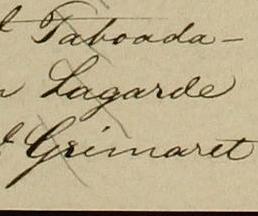 l Taboada-
n Lagarde
l Grimaret